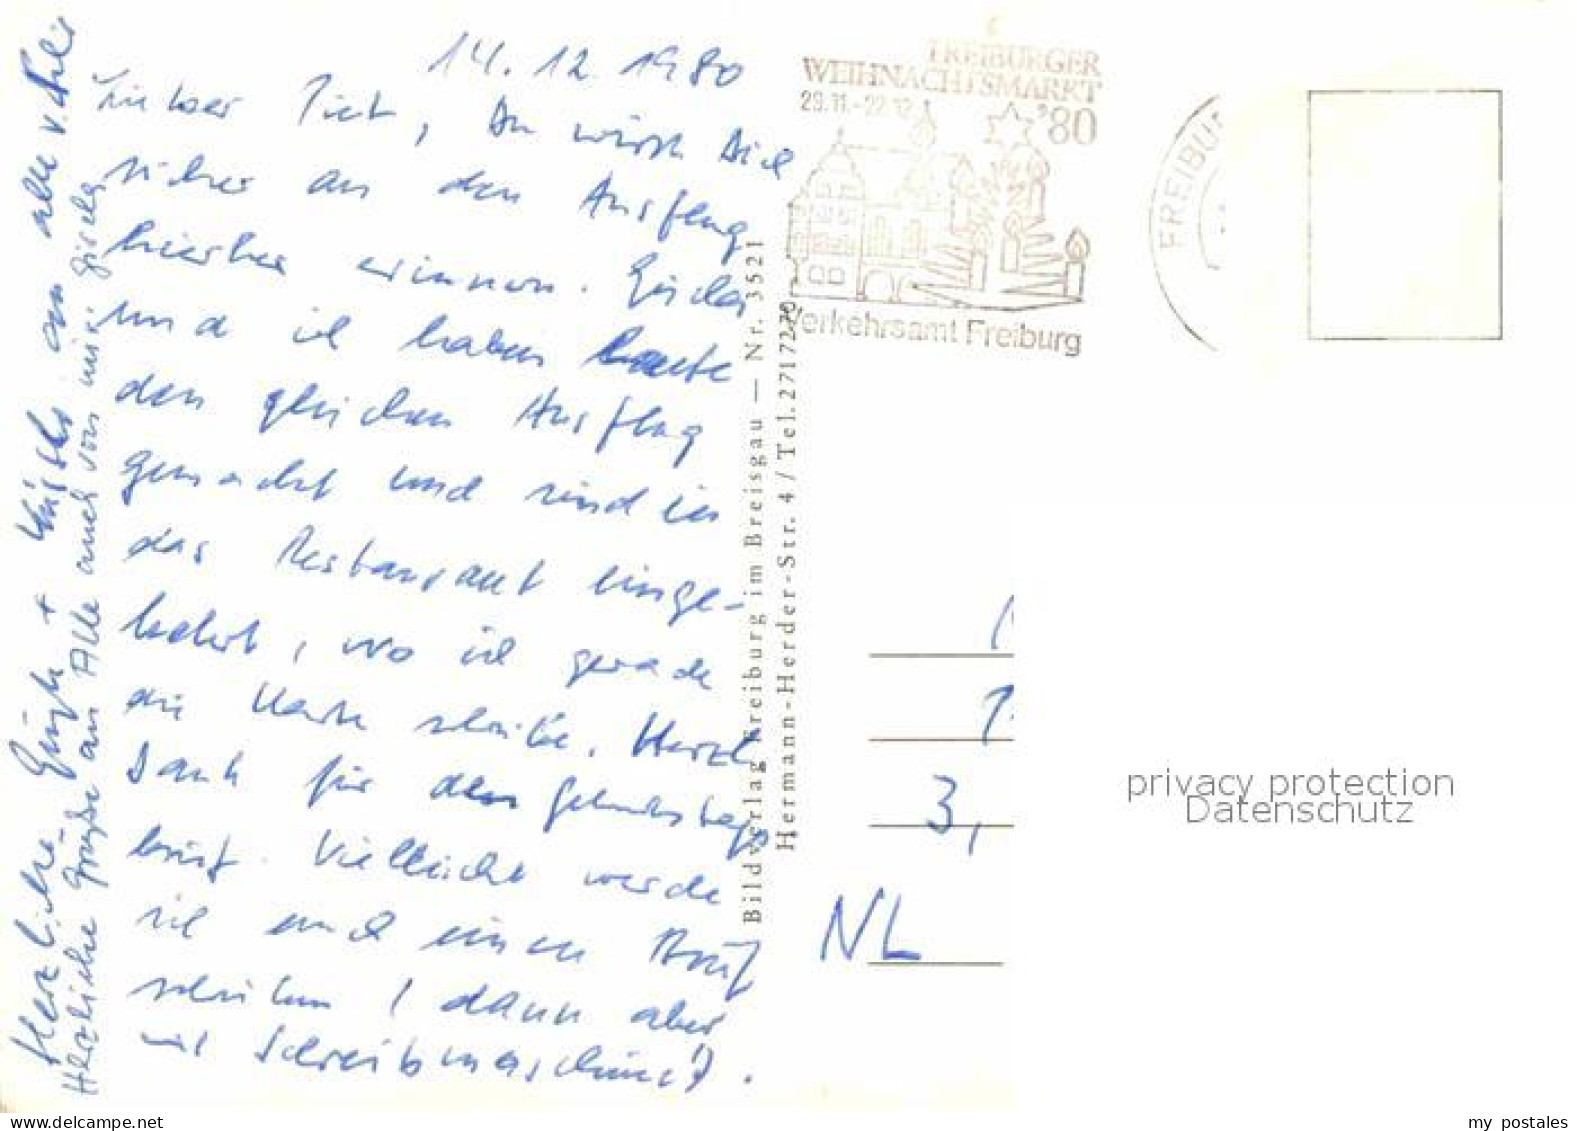 14.12.1980
Lieber Piet, Du wirst Dich
sicher an den Ausflug
hierher erinnern. Gisela
und ich haben heute
den gleichen Ausflug
gemacht und sind in
das Restaurant einge-
kehrt, wo ich gerade
die Karte schreibe. Herzl.
Dank für den Geburtstags
brief. Vielleicht werde
ich auch einen Brief
schreiben (dann aber
mit Schreibmaschine!).
Herzliche Grüße + Küsse an alle v.
Herzliche Grüße an Alle auch von mir. Gisela
FREIBURGER
WEIHNACHTSMARKT
29.11.-22.12. '80
Verkehrsamt Freiburg
FREIBUR
Bildverlag Freiburg im Breisgau — Nr. 3521
Hermann-Herder-Str. 4 / Tel. 2717270
3,
NL
privacy protection
Datenschutz
my postales